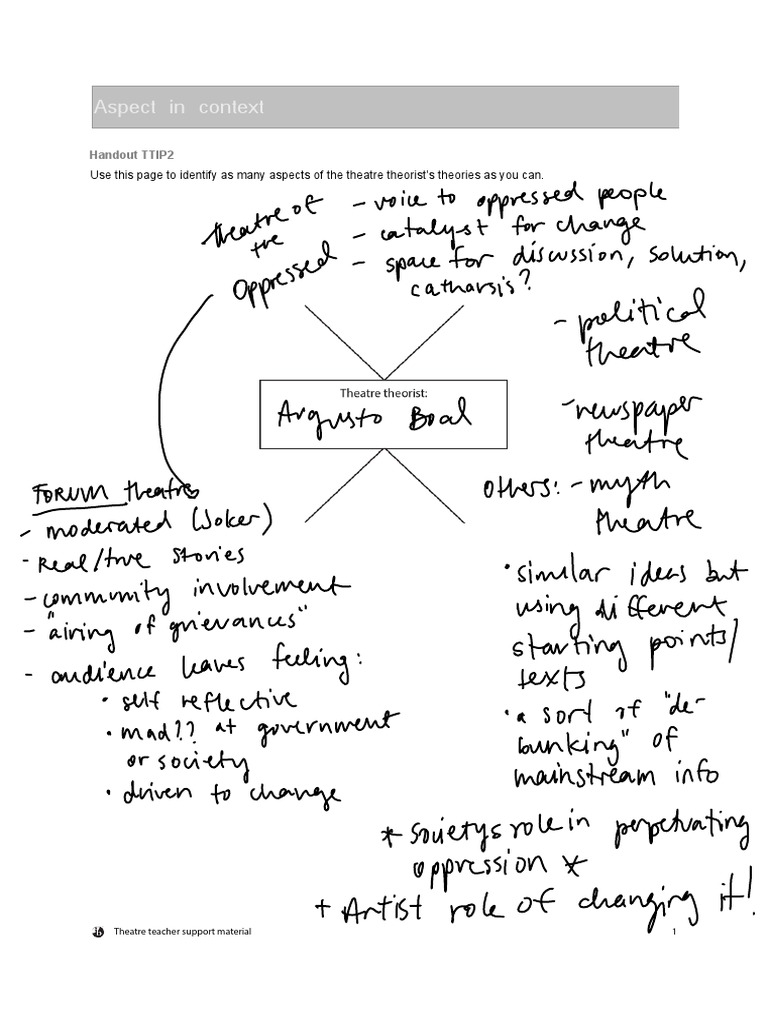 Aspect in context
Handout TTIP2
Use this page to identify as many aspects of the theatre theorist's theories as you can.
theatre of
the
Oppressed
- voice to oppressed people
- catalyst for change
- space for discussion, solution,
catharsis?
- political
theatre
- newspaper
theatre
Others: - myth
theatre
• similar ideas but
using different
starting points/
texts
• a sort of "de-
bunking" of
mainstream info
Theatre theorist:
Augusto Boal
FORUM theatre
- moderated (Joker)
- Real/true stories
- community involvement
- "airing of grievances"
- audience leaves feeling:
• self reflective
• mad?? at government
or society
• driven to change
* Societys role in perpetuating
oppression *
+ Artist role of changing it!
Theatre teacher support material
1